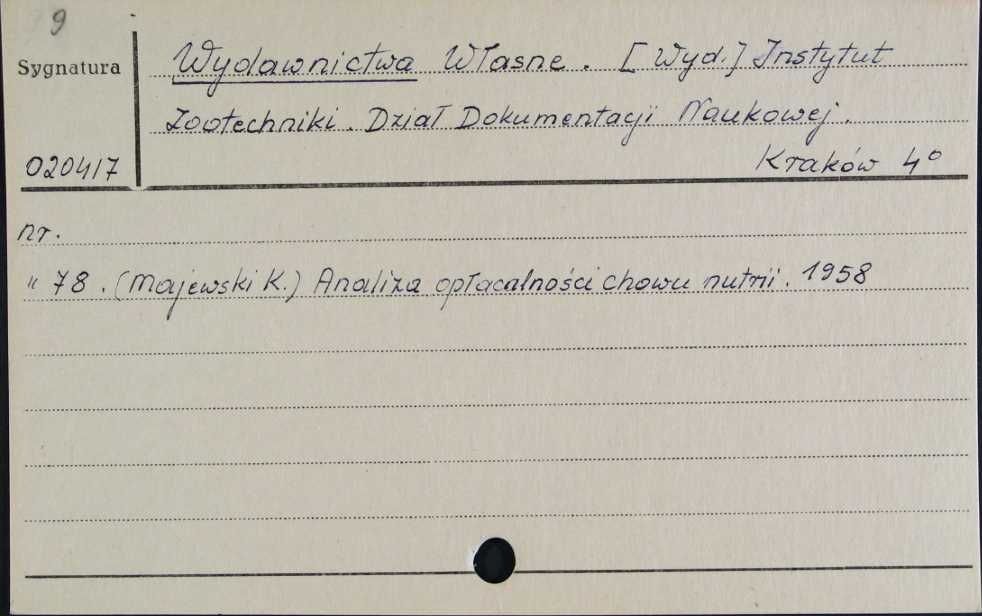 9
Sygnatura
Wydawnictwa Własne. [Wyd.] Instytut
Zootechniki. Dział Dokumentacji Naukowej.
020417
Kraków 4°
nr.
" 78. (Majewski K.) Analiza opłacalności chowu nutrii. 1958